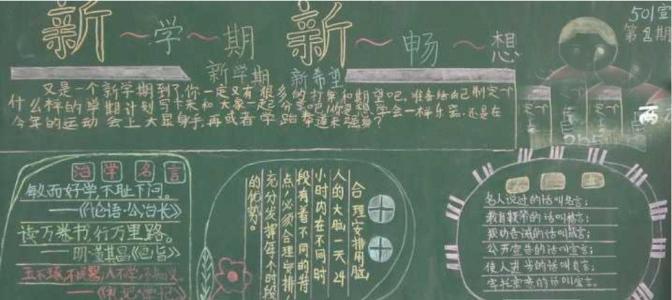 新～学～期 新～畅～想
501宣
第2期
新学期 新希望
又是一个新学期到了你一定又有很多的打算和期望吧,准备给自己制定一个
什么样的学期计划写下来和大家一起分享吧你是想学会一种乐器,还是在
今年的运动会上大显身手,再或者学跆拳道来强身?
治学名言
敏而好学不耻下问。
——《论语·公冶长》
读万卷书,行万里路。
——明·董其昌《画旨》
玉不琢,不成器,人不学,不知义
——《礼记·学记》
合理安排用脑
人的大脑,一天24
小时内在不同时
段有着不同的特
点,必须合理安排,
充分发挥每个时段
的优势。
名人说过的话叫名言;
公开宣告的话叫宣言;